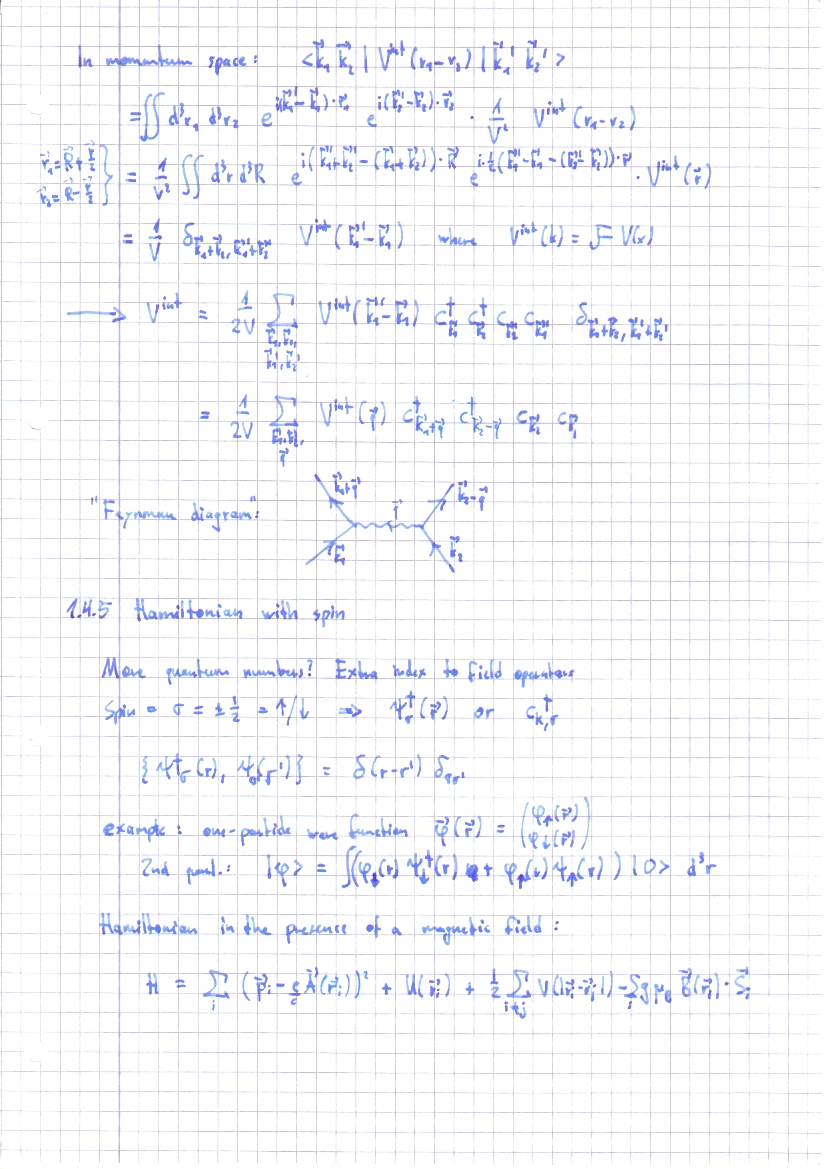 In momentum space: <k⃗₁ k⃗₂ | V^int (r₁-r₂) | k⃗₁' k⃗₂'>
= ∬ d³r₁ d³r₂ e^{i(k⃗₁'-k⃗₁)·r⃗₁} e^{i(k⃗₂'-k⃗₂)·r⃗₂} · 1/V² V^int (r₁-r₂)
r⃗₁ = R⃗ + r⃗/2
r⃗₂ = R⃗ - r⃗/2 } = 1/V² ∬ d³r d³R e^{i(k⃗₁'+k⃗₂' - (k⃗₁+k⃗₂))·R⃗} e^{i·½(k⃗₁'-k⃗₁ - (k⃗₂'-k⃗₂))·r⃗} · V^int(r⃗)
= 1/V δ_{k⃗₁+k⃗₂, k⃗₁'+k⃗₂'} V^int(k⃗₁'-k⃗₁) where V^int(k) = F V(x)
⟶ V^int = 1/2V Σ_{k⃗₁,k⃗₂, k⃗₁',k⃗₂'} V^int(k⃗₁'-k⃗₁) c†_{k⃗₁} c†_{k⃗₂} c_{k⃗₂'} c_{k⃗₁'} δ_{k⃗₁+k⃗₂, k⃗₁'+k⃗₂'}
= 1/2V Σ_{k⃗₁,k⃗₂, q⃗} V^int(q⃗) c†_{k⃗₁+q⃗} c†_{k⃗₂-q⃗} c_{k⃗₂} c_{k⃗₁}
k⃗₁+q⃗ q⃗ k⃗₂-q⃗
"Feynman diagram":
k⃗₁ k⃗₂
1.4.5 Hamiltonian with spin
More quantum numbers? Extra index to field operators
Spin = σ = ±½ = ↑/↓ ⇒ ψ†_σ(r⃗) or c†_{k,σ}
{ψ†_σ(r), ψ_σ'(r')} = δ(r-r') δ_{σσ'}
example: one-particle wave function φ⃗(r⃗) = (φ↑(r⃗) φ↓(r⃗))
2nd quant.: |φ> = ∫(φ↓(r) ψ↓†(r) + φ↑(r) ψ↑(r)) |0> d³r
Hamiltonian in the presence of a magnetic field:
H = Σ_i (p⃗_i - e/c A⃗(r⃗_i))² + U(r⃗_i) + ½ Σ_{i≠j} V(|r⃗_i-r⃗_j|) - Σ_i g μ_B B⃗(r⃗_i)·S⃗_i